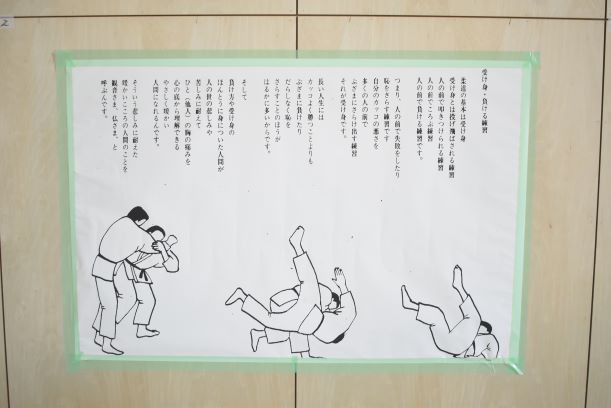 受け身・負ける練習
柔道の基本は受け身
受け身とは投げ飛ばされる練習
人の前で叩きつけられる練習
人の前でころぶ練習
人の前で負ける練習です。
つまり、人の前で失敗をしたり
恥をさらす練習です
自分のカッコの悪さを
多くの人の前で
ぶざまにさらけ出す練習
それが受け身です。
長い人生には
カッコよく勝つことよりも
ぶざまに負けたり
だらしなく恥を
さらすことのほうが
はるかに多いからです。
そして
負け方や受け身の
ほんとうに身についた人間が
人の世の悲しみや
苦しみに耐えて
ひと（他人）の胸の痛みを
心の底から理解できる
やさしく暖かい
人間になれるんです。
そういう悲しみに耐えた
暖かいこころの人間のことを
観音さま、仏さま、と
呼ぶんです。
2